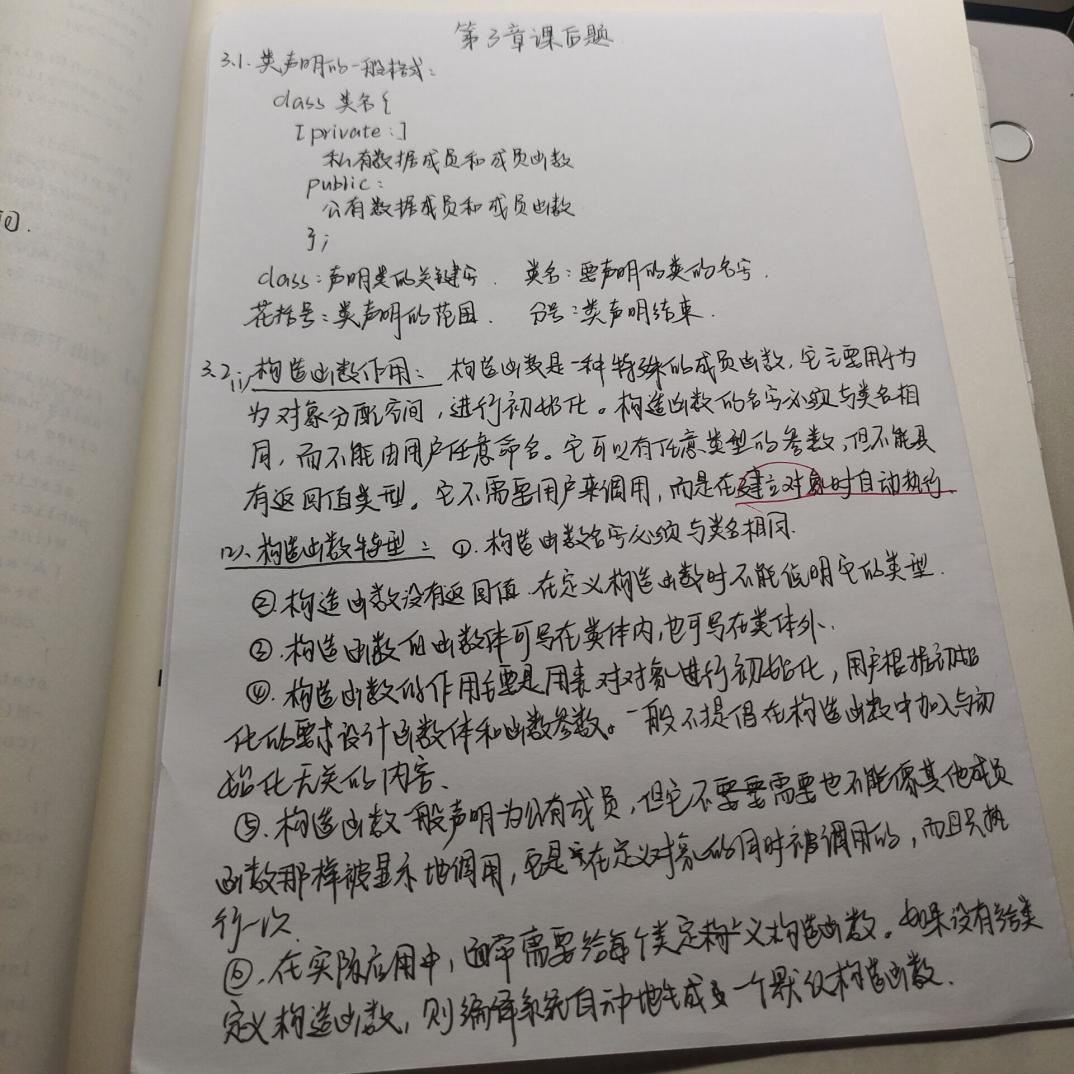 第3章课后题
3.1.类声明的一般格式:
class 类名{
[private:]
私有数据成员和成员函数
public:
公有数据成员和成员函数
};
class:声明类的关键字. 类名:要声明的类的名字.
花括号:类声明的范围. 分号:类声明结束.
3.2(1)构造函数作用: 构造函数是一种特殊的成员函数,它主要用于为
为对象分配空间,进行初始化。构造函数的名字必须与类名相
同,而不能由用户任意命名。它可以有任意类型的参数,但不能具
有返回值类型。它不需要用户来调用,而是在建立对象时自动执行.
(2).构造函数特型: ①.构造函数名字必须与类名相同.
②.构造函数没有返回值.在定义构造函数时不能说明它的类型.
③.构造函数的函数体可写在类体内,也可写在类体外.
④.构造函数的作用主要是用来对对象进行初始化,用户根据初始
化的要求设计函数体和函数参数。一般不提倡在构造函数中加入与初
始化无关的内容、
⑤.构造函数一般声明为公有成员,但它不需要也不能像其他成员
函数那样被显示地调用,它是在定义对象的同时被调用的,而且只执
行一次.
⑥.在实际应用中,通常需要给每个类定义构造函数。如果没有给类
定义构造函数,则编译系统自动地生成一个默认构造函数.